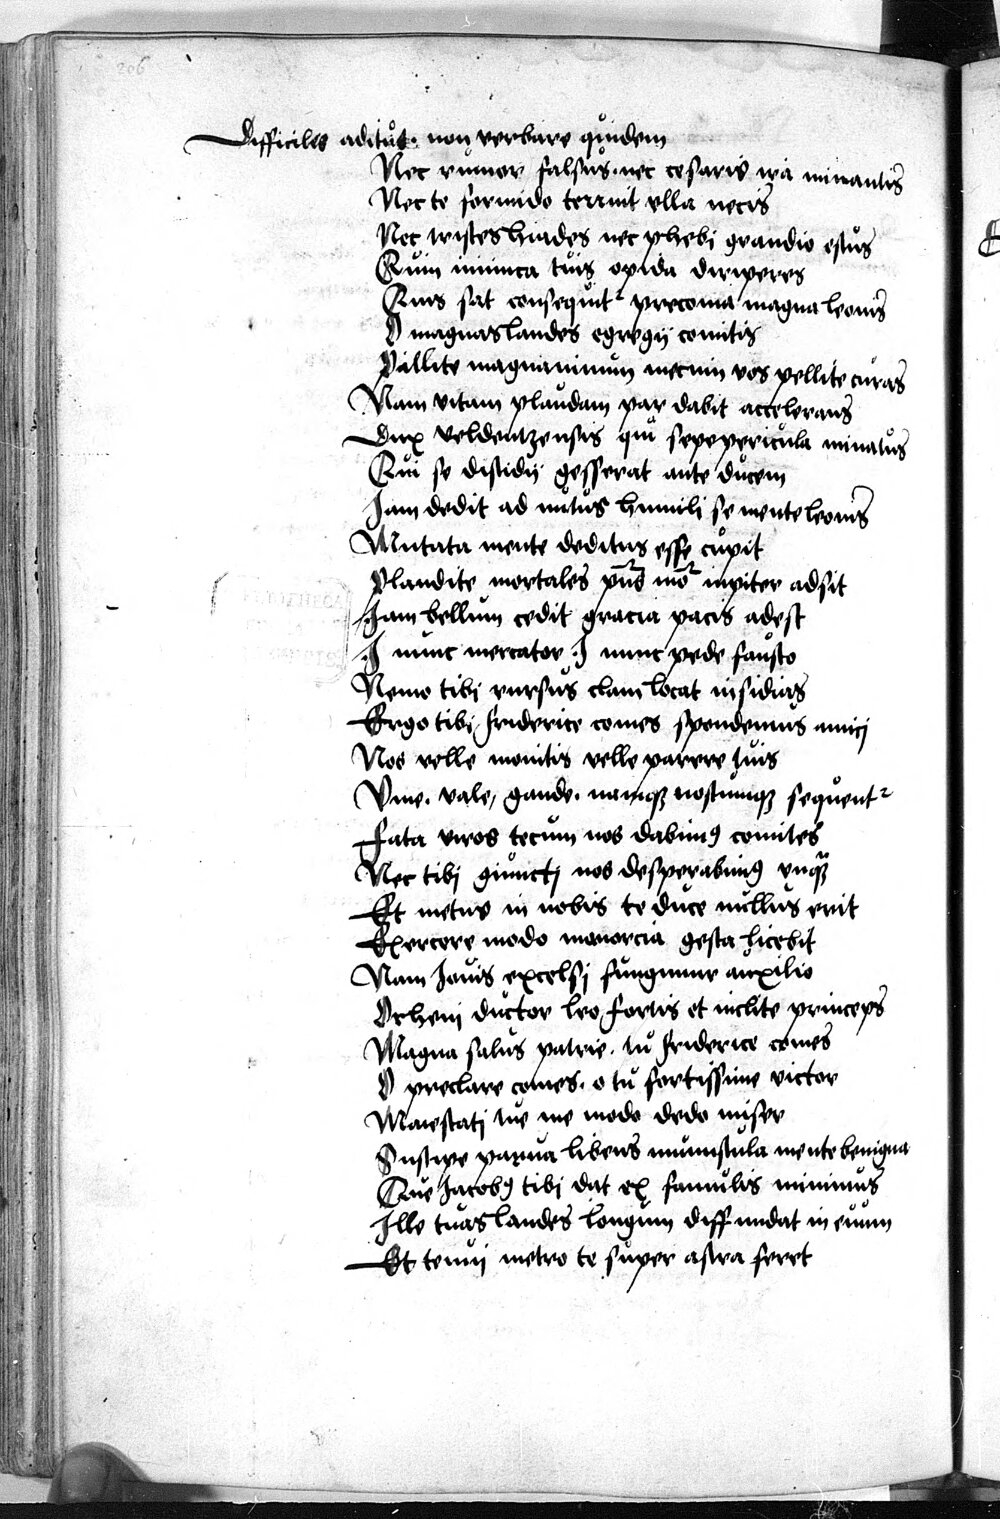 206
Difficiles aditus. non verbare quidem
Nec rumor falsus. nec cesaris ira minantis
Nec te formido terruit vlla necis
Nec tristes hiades nec phebi grandio estus
Quin inimica tuis opida diriperes
Quis sat consequit² preconia magna leonis
O magnas laudes egregij comitis
Psallite magnanimum mecum vos pellite curas
Nam vitam plaudam par dabit accelerans
Dux veldentzensis qui sepe pericula minatus
Qui se disidij gesserat ante ducem
Jam dedit ad nutus humili se mente leonis
Mutata mente deditus esse cupit
Plaudite mortales iupiter adsit
Jam bellum cedit gracia pacis adest
.J nunc mercator .J nunc pede fausto
Nemo tibj rursus clam locat insidias
Ergo tibj friderice comes spondemus amicj
Nos velle monitis velle parere tuis
Viue. vale, gaude. namqꝫ sequent²
Fata viros tecum nos dabimꝰ comites
Nec tibj giunctj nos desperabimꝰ vnqꝫ
Et metus in nobis te duce nullus erit
Exercere modo mauorcia gesta licebit
Nam Jouis excelsj fungimur auxilio
O rheni ductor leo fortis et inclite princeps
Magna salus patrie. tu friderice comes
O preclare comes. o tu fortissime victor
Maiestatj tue me modo dedo miser
Suscipe parua libens munuscula mente benigna
Que Jacobꝰ tibj dat ex famulis minimus
Ille tuas laudes longum diffundat in euum
Et tenuj metro te super astra feret